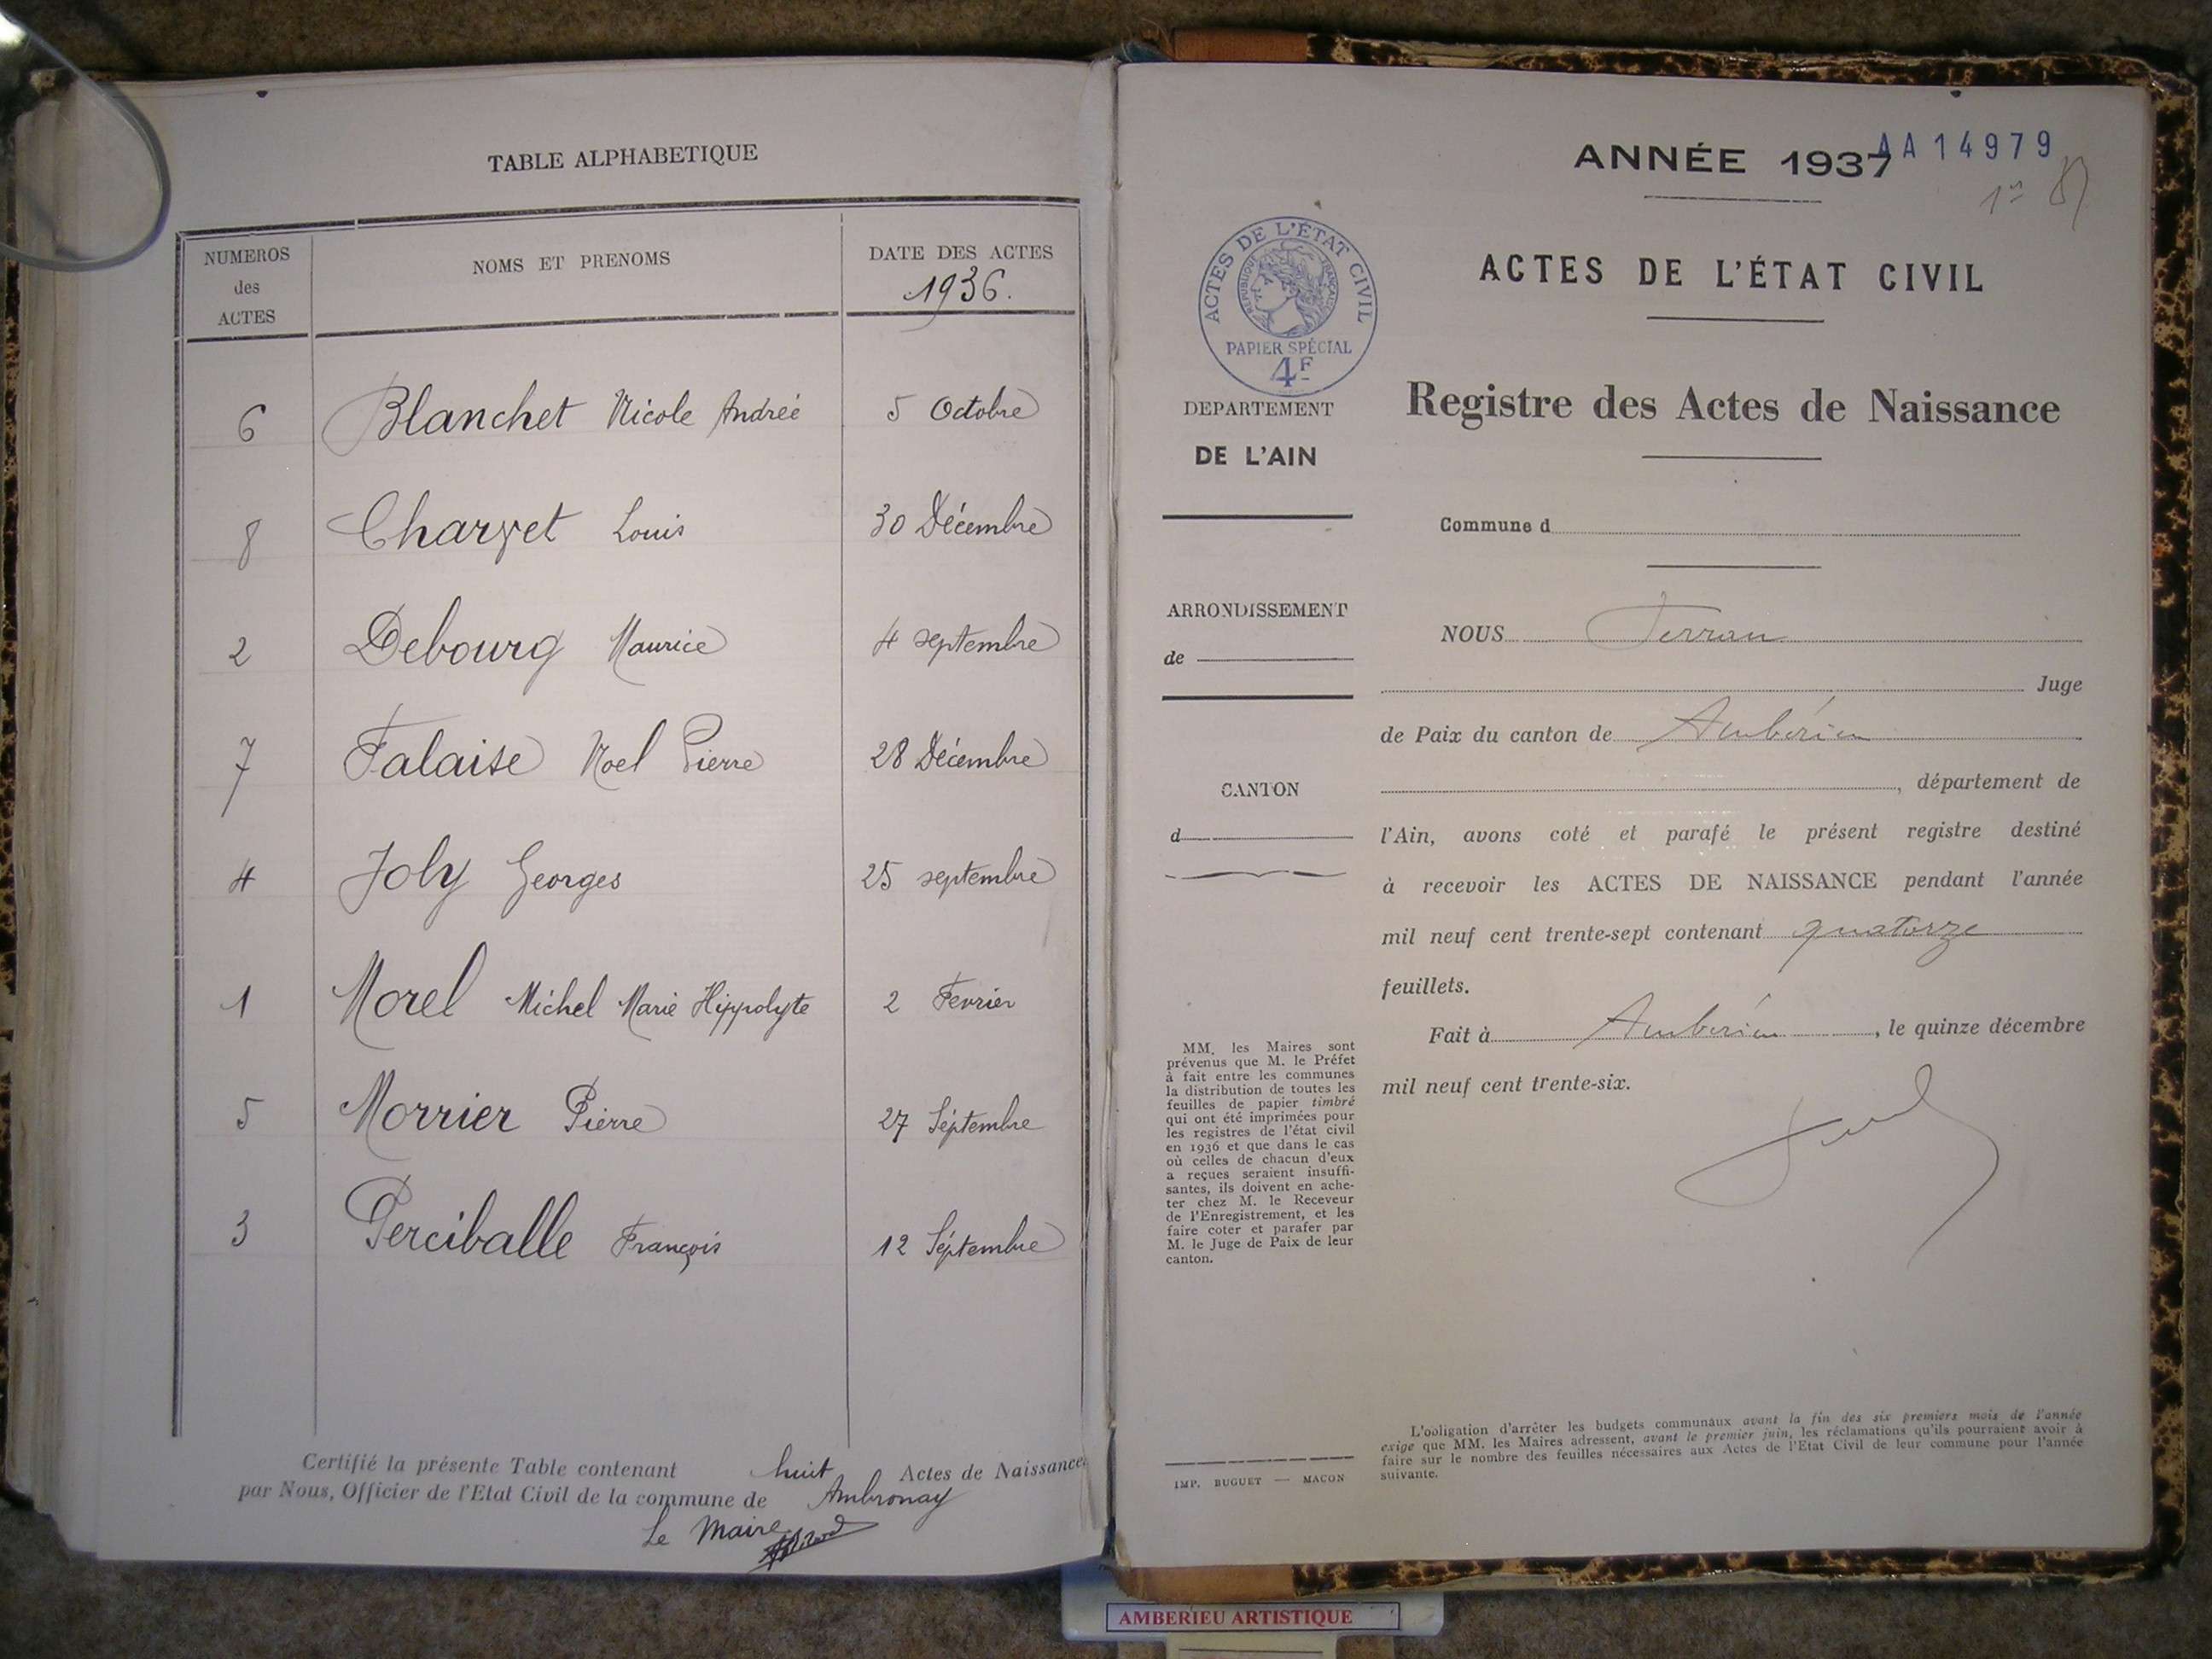 TABLE ALPHABETIQUE
NUMEROS des ACTES
NOMS ET PRENOMS
DATE DES ACTES
1936.
6 Blanchet Nicole Andrée 5 Octobre
8 Charvet Louis 30 Décembre
2 Debourg Maurice 4 septembre
7 Falaise Noel Pierre 28 Décembre
4 Joly Georges 25 septembre
1 Morel Michel Marie Hippolyte 2 Fevrier
5 Morrier Pierre 27 Séptembre
3 Perciballe François 12 Séptembre
Certifié la présente Table contenant huit Actes de Naissance,
par Nous, Officier de l'Etat Civil de la commune de Ambronay
Le Maire
ANNÉE 1937
AA14979
ACTES DE L'ÉTAT CIVIL
RÉPUBLIQUE FRANÇAISE
PAPIER SPÉCIAL
4F
DEPARTEMENT
DE L'AIN
ARRONDISSEMENT
de
CANTON
d
MM. les Maires sont
prévenus que M. le Préfet
à fait entre les communes
la distribution de toutes les
feuilles de papier timbré
qui ont été imprimées pour
les registres de l'état civil
en 1936 et que dans le cas
où celles de chacun d'eux
a reçues seraient insuffi-
santes, ils doivent en ache-
ter chez M. le Receveur
de l'Enregistrement, et les
faire coter et parafer par
M. le Juge de Paix de leur
canton.
IMP. BUGUET — MACON
ACTES DE L'ÉTAT CIVIL
Registre des Actes de Naissance
Commune d
NOUS
Juge
de Paix du canton de Ambérieu
, département de
l'Ain, avons coté et parafé le présent registre destiné
à recevoir les ACTES DE NAISSANCE pendant l'année
mil neuf cent trente-sept contenant quatorze
feuillets.
Fait à Ambérieu, le quinze décembre
mil neuf cent trente-six.
L'ooligation d'arrêter les budgets communaux avant la fin des six premiers mois de l'année
exige que MM. les Maires adressent, avant le premier juin, les réclamations qu'ils pourraient avoir à
faire sur le nombre des feuilles nécessaires aux Actes de l'Etat Civil de leur commune pour l'année
suivante.
AMBERIEU ARTISTIQUE